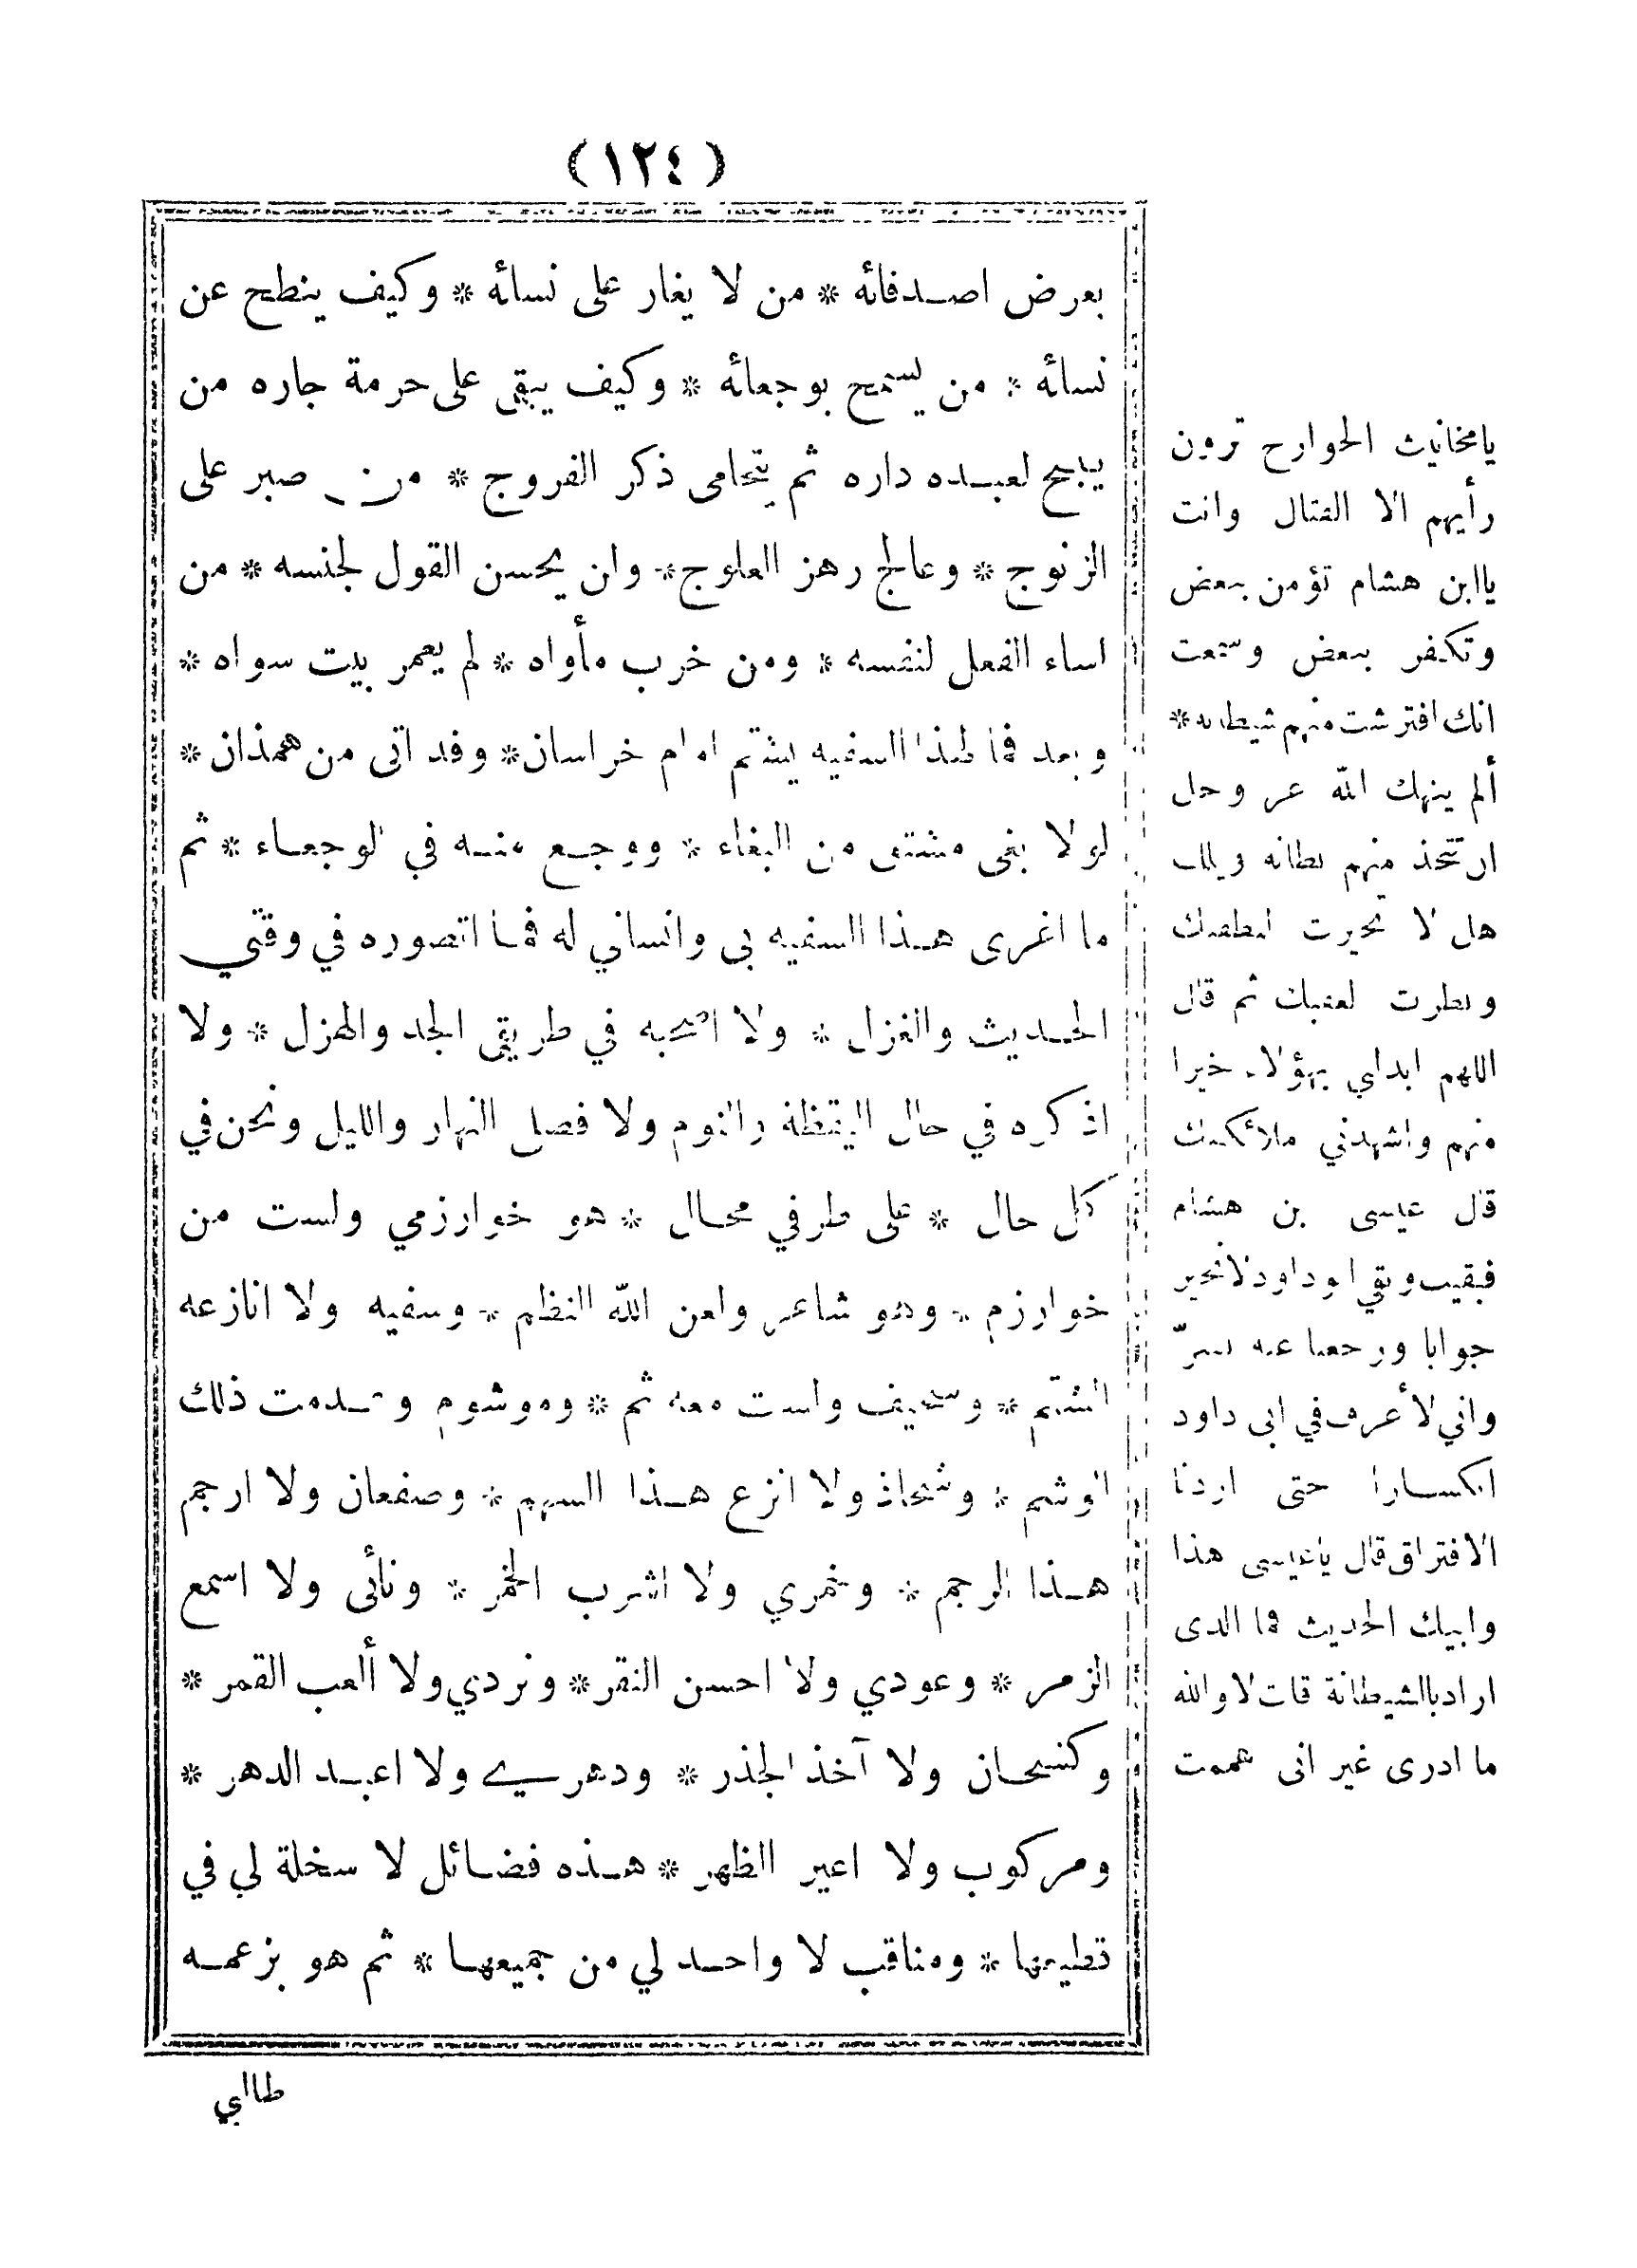 (١٢٤)
بعرض اصدقائه * من لا يغار على نسائه * وكيف ينطح عن
نسائه * من يسمح بوجعائه * وكيف يبقى على حرمة جاره من
يبيح لعبيده داره ثم يتحامى ذكر الفروج * من صبر على
الزنوج * وعالج رهز العلوج * وان يحسن القول لجنسه * من
اساء الفعل لنفسه * ومن خرب مأواه * لم يعمر بيت سواه *
وبعد فما لهذا السفيه يشتم امام خراسان * وقد اتى من همذان *
لولا بغى مشتق من البغاء * ووجع منه في الوجعاء * ثم
ما اغرى هذا السفيه بي وانساني له فما اتصوره في وقتي
الحديث والغزل * ولا اصحبه في طريقي الجد والهزل * ولا
اذكره في حال اليقظة والنوم ولا فصل النهار والليل ونحن في
كل حال * على طرفي محال * هو خوارزمي ولست من
خوارزم * وهو شاعر ولعن الله النظم * وسفيه ولا انازعه
الشتم * وسخيف ولست معه ثم * وموشوم وعدمت ذلك
الوشم * وشحاذ ولا انزع هذا السهم * وصفعان ولا ارجم
هذا الرجم * وخمري ولا اشرب الخمر * ونأبى ولا اسمع
الزمر * وعودي ولا احسن النقر * ونردي ولا ألعب القمر *
وكشحان ولا آخذ الجذر * ودهري ولا اعبد الدهر *
ومركوب ولا اعير الظهر * هذه فضائل لا سخلة لي في
قطيعها * ومناقب لا واحد لي من جميعها * ثم هو بزعمه
طالبي
يامخانيث الخوارج ترون
رأيهم الا القتال وانت
ياابن هشام تؤمن ببعض
وتكفر ببعض وسمعت
انك افترشت منهم شيطانه *
ألم ينهك الله عز وجل
ان تتخذ منهم بطانه ويلك
هل لا تخيرت لنطفتك
ونظرت لعقبك ثم قال
اللهم ابدلني بهؤلاء خيرا
منهم واشهدني ملائكتك
قال عيسى بن هشام
فبقيت وبقي ابو داود لا نحير
جوابا ورجعنا عنه بشرّ
واني لأعرف في ابى داود
انكسارا حتى اردنا
الافتراق قال ياعيسى هذا
وابيك الحديث فما الذى
اراد بالشيطانة قلت لا والله
ما ادرى غير انى هممت